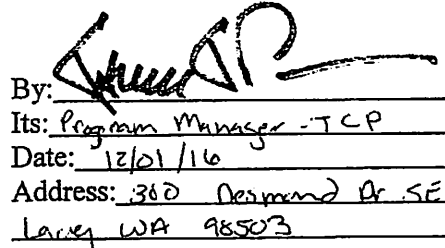 By:
Its: Program Manager - TCP
Date: 12/01/16
Address: 300 Desmond Dr SE
Lacey WA 98503